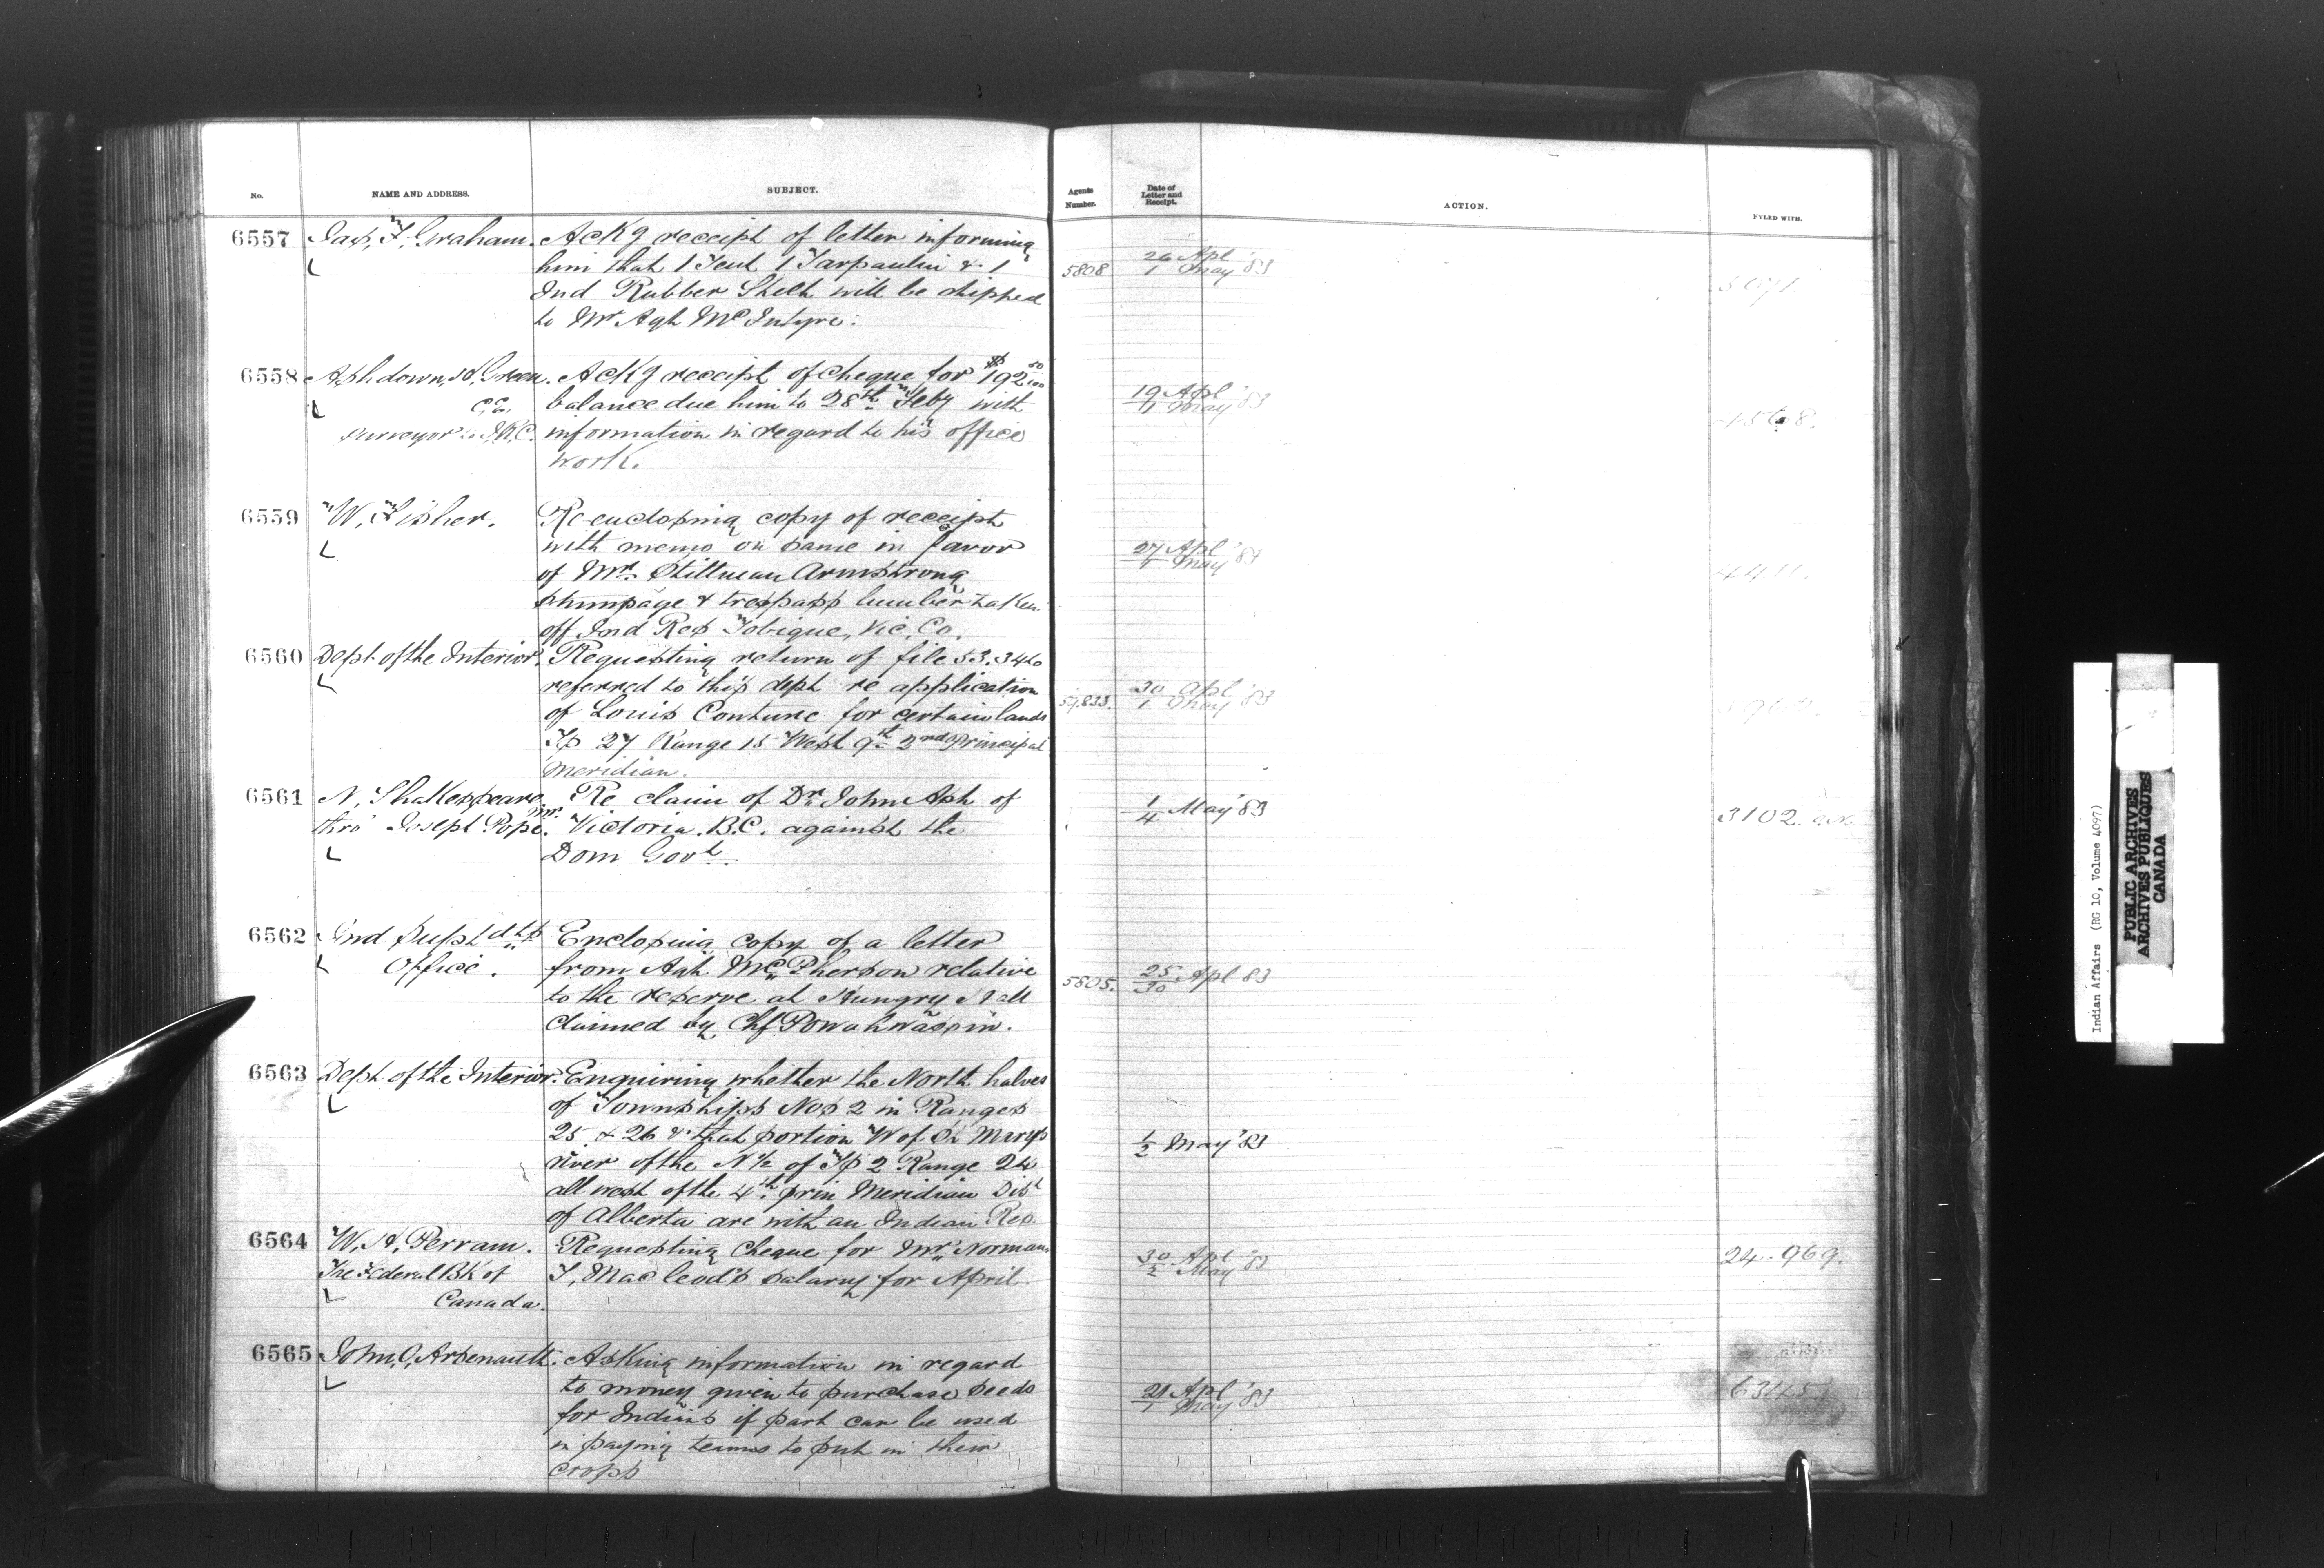 No. NAME AND ADDRESS. SUBJECT. Agents Number. Date of Letter and Receipt. ACTION. FYLED WITH.
6557 Jas, F, Graham. Ackg receipt of letter informing
him that 1 Tent 1 Tarpaulin & 1
Ind Rubber Sheet will be shipped
to Mr Agt McIntyre.
5808 26 Apl / 1 May '83
6558 Ashdown, H, Green. Ackg receipt of cheque for $192 50/100
C,E, balance due him to 28th Feby with
Surveyor I.R.C. information in regard to his office
work.
19 Apl / 1 May '83
6559 W, Fisher. Re-enclosing copy of receipt
with memo on same in favor
of Mr. Stillman Armstrong
stumpage & trespass lumber taken
off Ind Res Tobique, Vic, Co.
27 Apl / 1 May '83
6560 Dept of the Interior. Requesting return of file 53.346
referred to this dept re application
of Louis Couture for certain lands
Tp 27 Range 15 West 2nd Principal
Meridian.
59,833. 30 Apl / 1 May '83
6561 N, Shakespeare Re claim of Dr John Ash of
thro' Joseph Pope. Victoria. B.C. against the
Dom Govt.
1/4 May '83 3102.
6562 Ind Supt dts Enclosing copy of a letter
Office. from Agt McPherson relative
to the reserve at Hungry Hall
claimed by Chf Powahwassin.
5805. 25/30 Apl 83
6563 Dept of the Interior. Enquiring whether the North halves
of Townships Nos 2 in Ranges
25 & 26 & that portion W of St Marys
river of the N ½ of Tp 2 Range 24
all west of the 4th prin Meridian Dist
of Alberta are with an Indian Res.
1/2 May '83
6564 W, H, Perram. Requesting Cheque for Mr. Norman
The Federal Bk of T, Macleod's salary for April.
Canada.
30 Apl / 2 May '83 24.969.
6565 John, O, Arsenault. Asking information in regard
to money given to purchase seeds
for Indians if part can be used
in paying teams to put in their
crops
21 Apl / 1 May '83
Indian Affairs (RG 10, Volume 4097)
PUBLIC ARCHIVES
ARCHIVES PUBLIQUES
CANADA